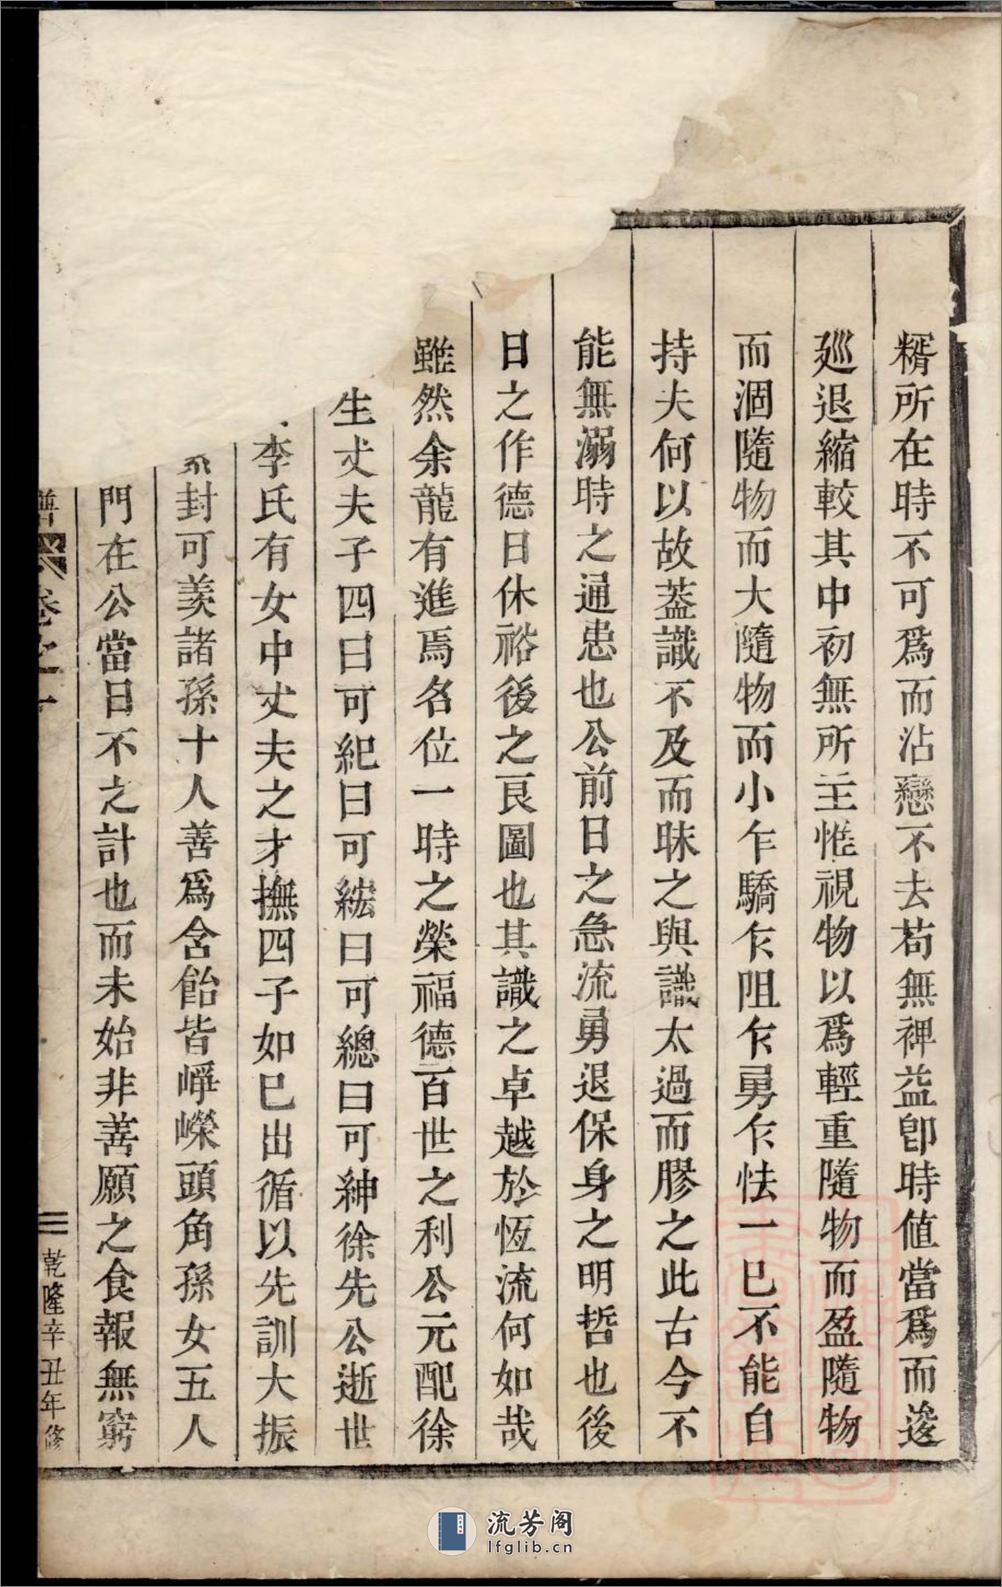 糈所在時不可爲而沾戀不去苟無裨益卽時值當爲而逡
廵退縮較其中初無所主惟視物以爲輕重隨物而盈隨物
而涸隨物而大隨物而小乍驕乍阻乍勇乍怯一已不能自
持夫何以故葢識不及而昧之與識太過而膠之此古今不
能無溺時之通患也公前日之急流勇退保身之明哲也後
日之作德日休裕後之良圖也其識之卓越於恆流何如哉
雖然余龍有進焉名位一時之榮福德百世之利公元配徐
生丈夫子四曰可紀曰可綋曰可總曰可紳徐先公逝世
李氏有女中丈夫之才撫四子如已出循以先訓大振
封可羨諸孫十人善爲含飴皆崢嶸頭角孫女五人
門在公當日不之計也而未始非善願之食報無窮
譜 卷之一 三 乾隆辛丑年修
流芳阁
lfglib.cn